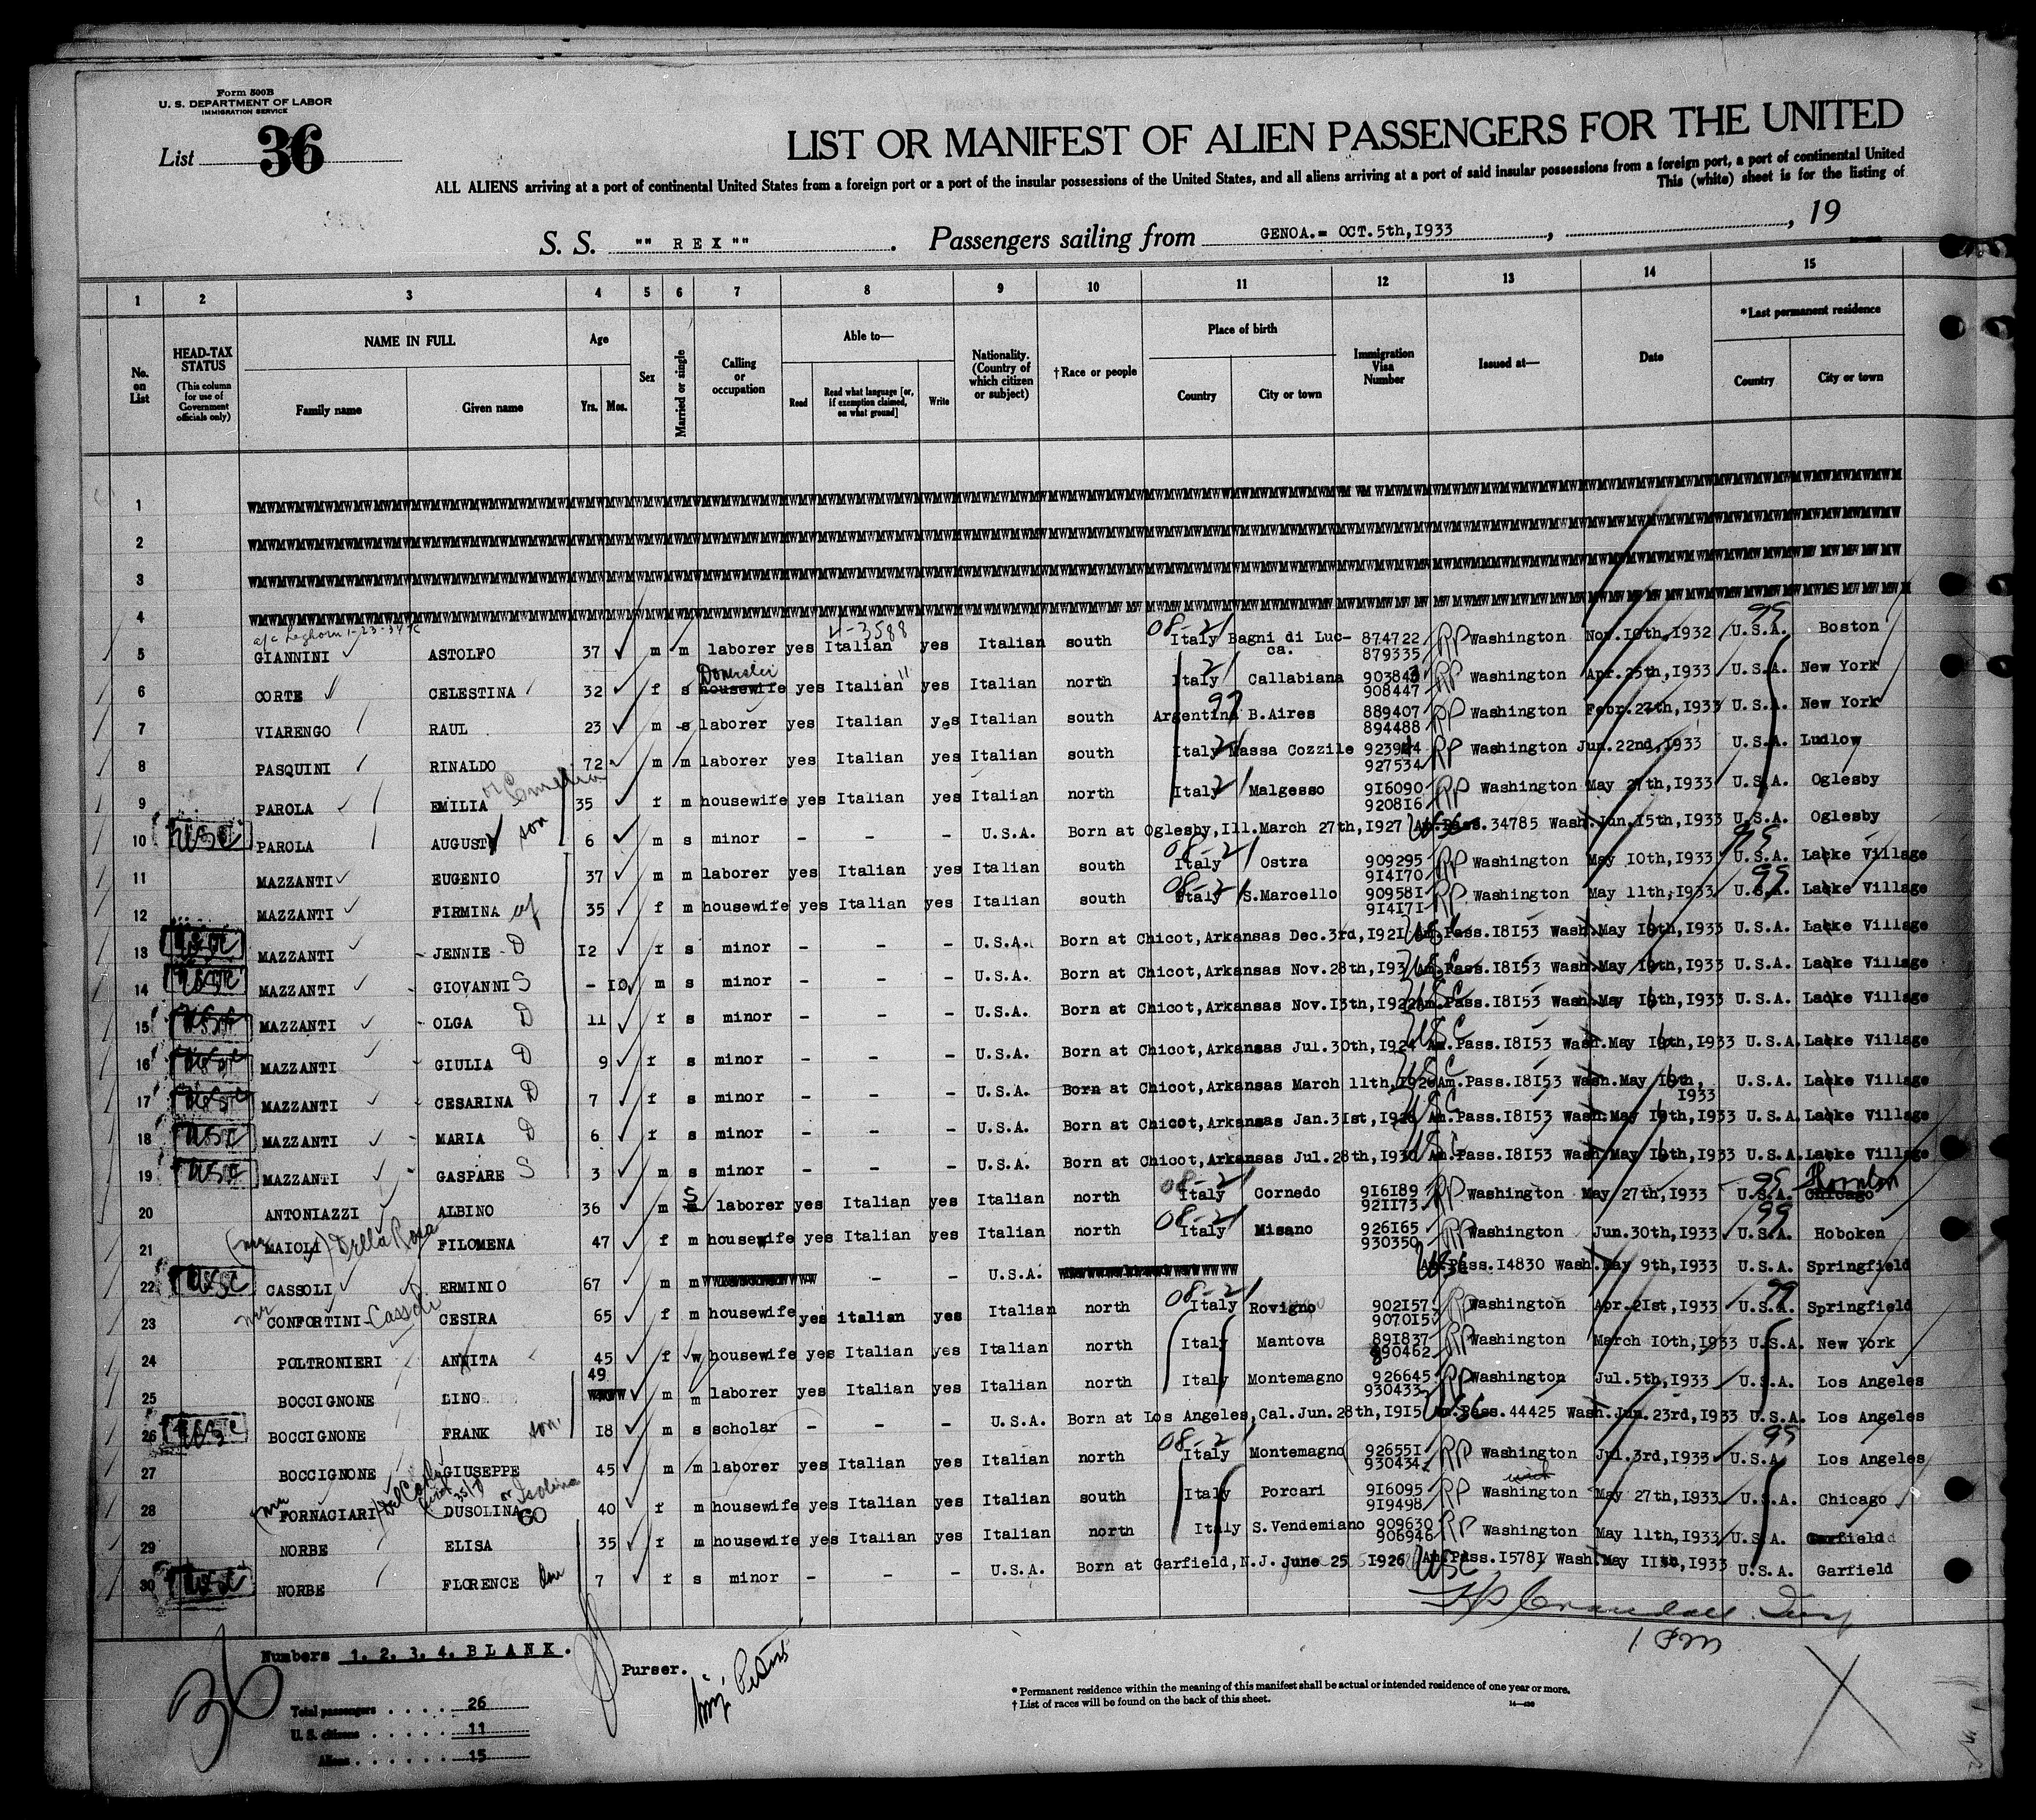 Form 500B
U. S. DEPARTMENT OF LABOR
IMMIGRATION SERVICE
List 36
LIST OR MANIFEST OF ALIEN PASSENGERS FOR THE UNITED
ALL ALIENS arriving at a port of continental United States from a foreign port or a port of the insular possessions of the United States, and all aliens arriving at a port of said insular possessions from a foreign port, a port of continental United
This (white) sheet is for the listing of
S. S. "" R E X "" . Passengers sailing from GENOA.= OCT.5th,1933 , , 19
1 2 3 4 5 6 7 8 9 10 11 12 13 14 15
No. on List HEAD-TAX STATUS (This column for use of Government officials only) NAME IN FULL Family name Given name Age Yrs. Mos. Sex Married or single Calling or occupation Able to— Read Read what language [or, if exemption claimed, on what ground] Write Nationality. (Country of which citizen or subject) †Race or people Place of birth Country City or town Immigration Visa Number Issued at— Date *Last permanent residence Country City or town
1
2
3
4
a/c Leghorn 1-23-34
5 GIANNINI ASTOLFO 37 m m laborer yes Italian 4-3588 yes Italian south 08-21 Italy Bagni di Luc-ca. 874722 879335 RP Washington Nov.10th,1932 99 U.S.A. Boston
6 CORTE CELESTINA 32 f s Domestic housewife yes Italian " yes Italian north 21 Italy Callabiana 903843 908447 RP Washington Apr.25th,1933 U.S.A. New York
7 VIARENGO RAUL 23 m s laborer yes Italian yes Italian south 97 Argentina B.Aires 889407 894488 RP Washington Febr.27th,1933 U.S.A. New York
8 PASQUINI RINALDO 72 m m laborer yes Italian yes Italian south Italy 21 Massa Cozzile 923944 927534 RP Washington Jun.22nd,1933 U.S.A. Ludlow
9 PAROLA EMILIA or Emelia 35 f m housewife yes Italian yes Italian north Italy 21 Malgesso 916090 920816 RP Washington May 27th,1933 U.S.A. Oglesby
10 USC PAROLA AUGUST son 6 m s minor - - - U.S.A. Born at Oglesby,Ill.March 27th,1927 USC Am.Pass.34785 Wash.Jun.15th,1933 U.S.A. Oglesby
11 MAZZANTI EUGENIO 37 m m laborer yes Italian yes Italian south 08-21 Italy Ostra 909295 914170 RP Washington May 10th,1933 99 U.S.A. Lacke Village
12 MAZZANTI FIRMINA wf 35 f m housewife yes Italian yes Italian south 08-21 Italy S.Marcello 909581 914171 RP Washington May 11th,1933 99 U.S.A. Lacke Village
13 USC MAZZANTI - JENNIE D 12 f s minor - - - U.S.A. Born at Chicot,Arkansas Dec.3rd,1921 USC Am.Pass.18153 Wash.May 10th,1933 U.S.A. Lacke Village
14 USC MAZZANTI - GIOVANNI S - 10 m s minor - - - U.S.A. Born at Chicot,Arkansas Nov.28th,193 USC Am.Pass.18153 Wash.May 10th,1933 U.S.A. Lacke Village
15 USC MAZZANTI - OLGA D 11 f s minor - - - U.S.A. Born at Chicot,Arkansas Nov.13th,1922 USC Am.Pass.18153 Wash.May 10th,1933 U.S.A. Lacke Village
16 USC MAZZANTI - GIULIA D 9 f s minor - - - U.S.A. Born at Chicot,Arkansas Jul.30th,1924 USC Am.Pass.18153 Wash.May 10th,1933 U.S.A. Lacke Village
17 USC MAZZANTI - CESARINA D 7 f s minor - - - U.S.A. Born at Chicot,Arkansas March 11th,1926 USC Am.Pass.18153 Wash.May 10th, 1933 U.S.A. Lacke Village
18 USC MAZZANTI - MARIA D 6 f s minor - - - U.S.A. Born at Chicot,Arkansas Jan.31st,1928 USC Am.Pass.18153 Wash.May 10th,1933 U.S.A. Lacke Village
19 USC MAZZANTI - GASPARE S 3 m s minor - - - U.S.A. Born at Chicot,Arkansas Jul.28th,1930 USC Am.Pass.18153 Wash.May 10th,1933 U.S.A. Lacke Village
20 ANTONIAZZI ALBINO 36 m S m laborer yes Italian yes Italian north 08-21 Italy Cornedo 916189 921173 RP Washington May 27th,1933 99 U.S.A. Chicago Thornton
21 (nee MAIOLI) Della Rosa FILOMENA 47 f m housewife yes Italian yes Italian north 08-21 Italy Misano 926165 930350 RP Washington Jun.30th,1933 99 U.S.A. Hoboken
22 USC CASSOLI ERMINIO 67 m m - - U.S.A. USC Am.Pass.14830 Wash.May 9th,1933 U.S.A. Springfield
23 nee CONFORTINI-Cassoli CESIRA 65 f m housewife yes italian yes Italian north 08-21 Italy Rovigno 902157 907015 RP Washington Apr.21st,1933 99 U.S.A. Springfield
24 POLTRONIERI ANNITA 45 f w housewife yes Italian yes Italian north Italy Mantova 891837 890462 RP Washington March 10th,1933 U.S.A. New York
25 BOCCIGNONE LINO 49 m m laborer yes Italian yes Italian north Italy Montemagno 926645 930433 RP Washington Jul.5th,1933 U.S.A. Los Angeles
26 USC BOCCIGNONE FRANK son 18 m s scholar - - - U.S.A. Born at Los Angeles,Cal.Jun.28th,1915 USC Am.Pass.44425 Wash.Jun.23rd,1933 U.S.A. Los Angeles
27 BOCCIGNONE GIUSEPPE 45 m m laborer yes Italian yes Italian north 08-21 Italy Montemagno 926551 930434 RP Washington Jul.3rd,1933 99 U.S.A. Los Angeles
28 (nee FORNACIARI) Del Carlo DUSOLINA or Isolina 60 40 f m housewife yes Italian yes Italian south Italy Porcari 916095 919498 RP Washington May 27th,1933 U.S.A. Chicago
29 NORBE ELISA 35 f m housewife yes Italian yes Italian north Italy S.Vendemiano 909630 906946 RP Washington May 11th,1933 U.S.A. Garfield
30 USC NORBE FLORENCE dau 7 f s minor - - - U.S.A. Born at Garfield,N.J. June 25 1926 USC Am.Pass.15781 Wash.May 11th,1933 U.S.A. Garfield
1 PM
Numbers 1. 2. 3. 4. B L A N K .
Purser.
36
Total passengers . . . . . 26
U. S. citizens . . . . . 11
Aliens . . . . . . 15
* Permanent residence within the meaning of this manifest shall be actual or intended residence of one year or more.
† List of races will be found on the back of this sheet.